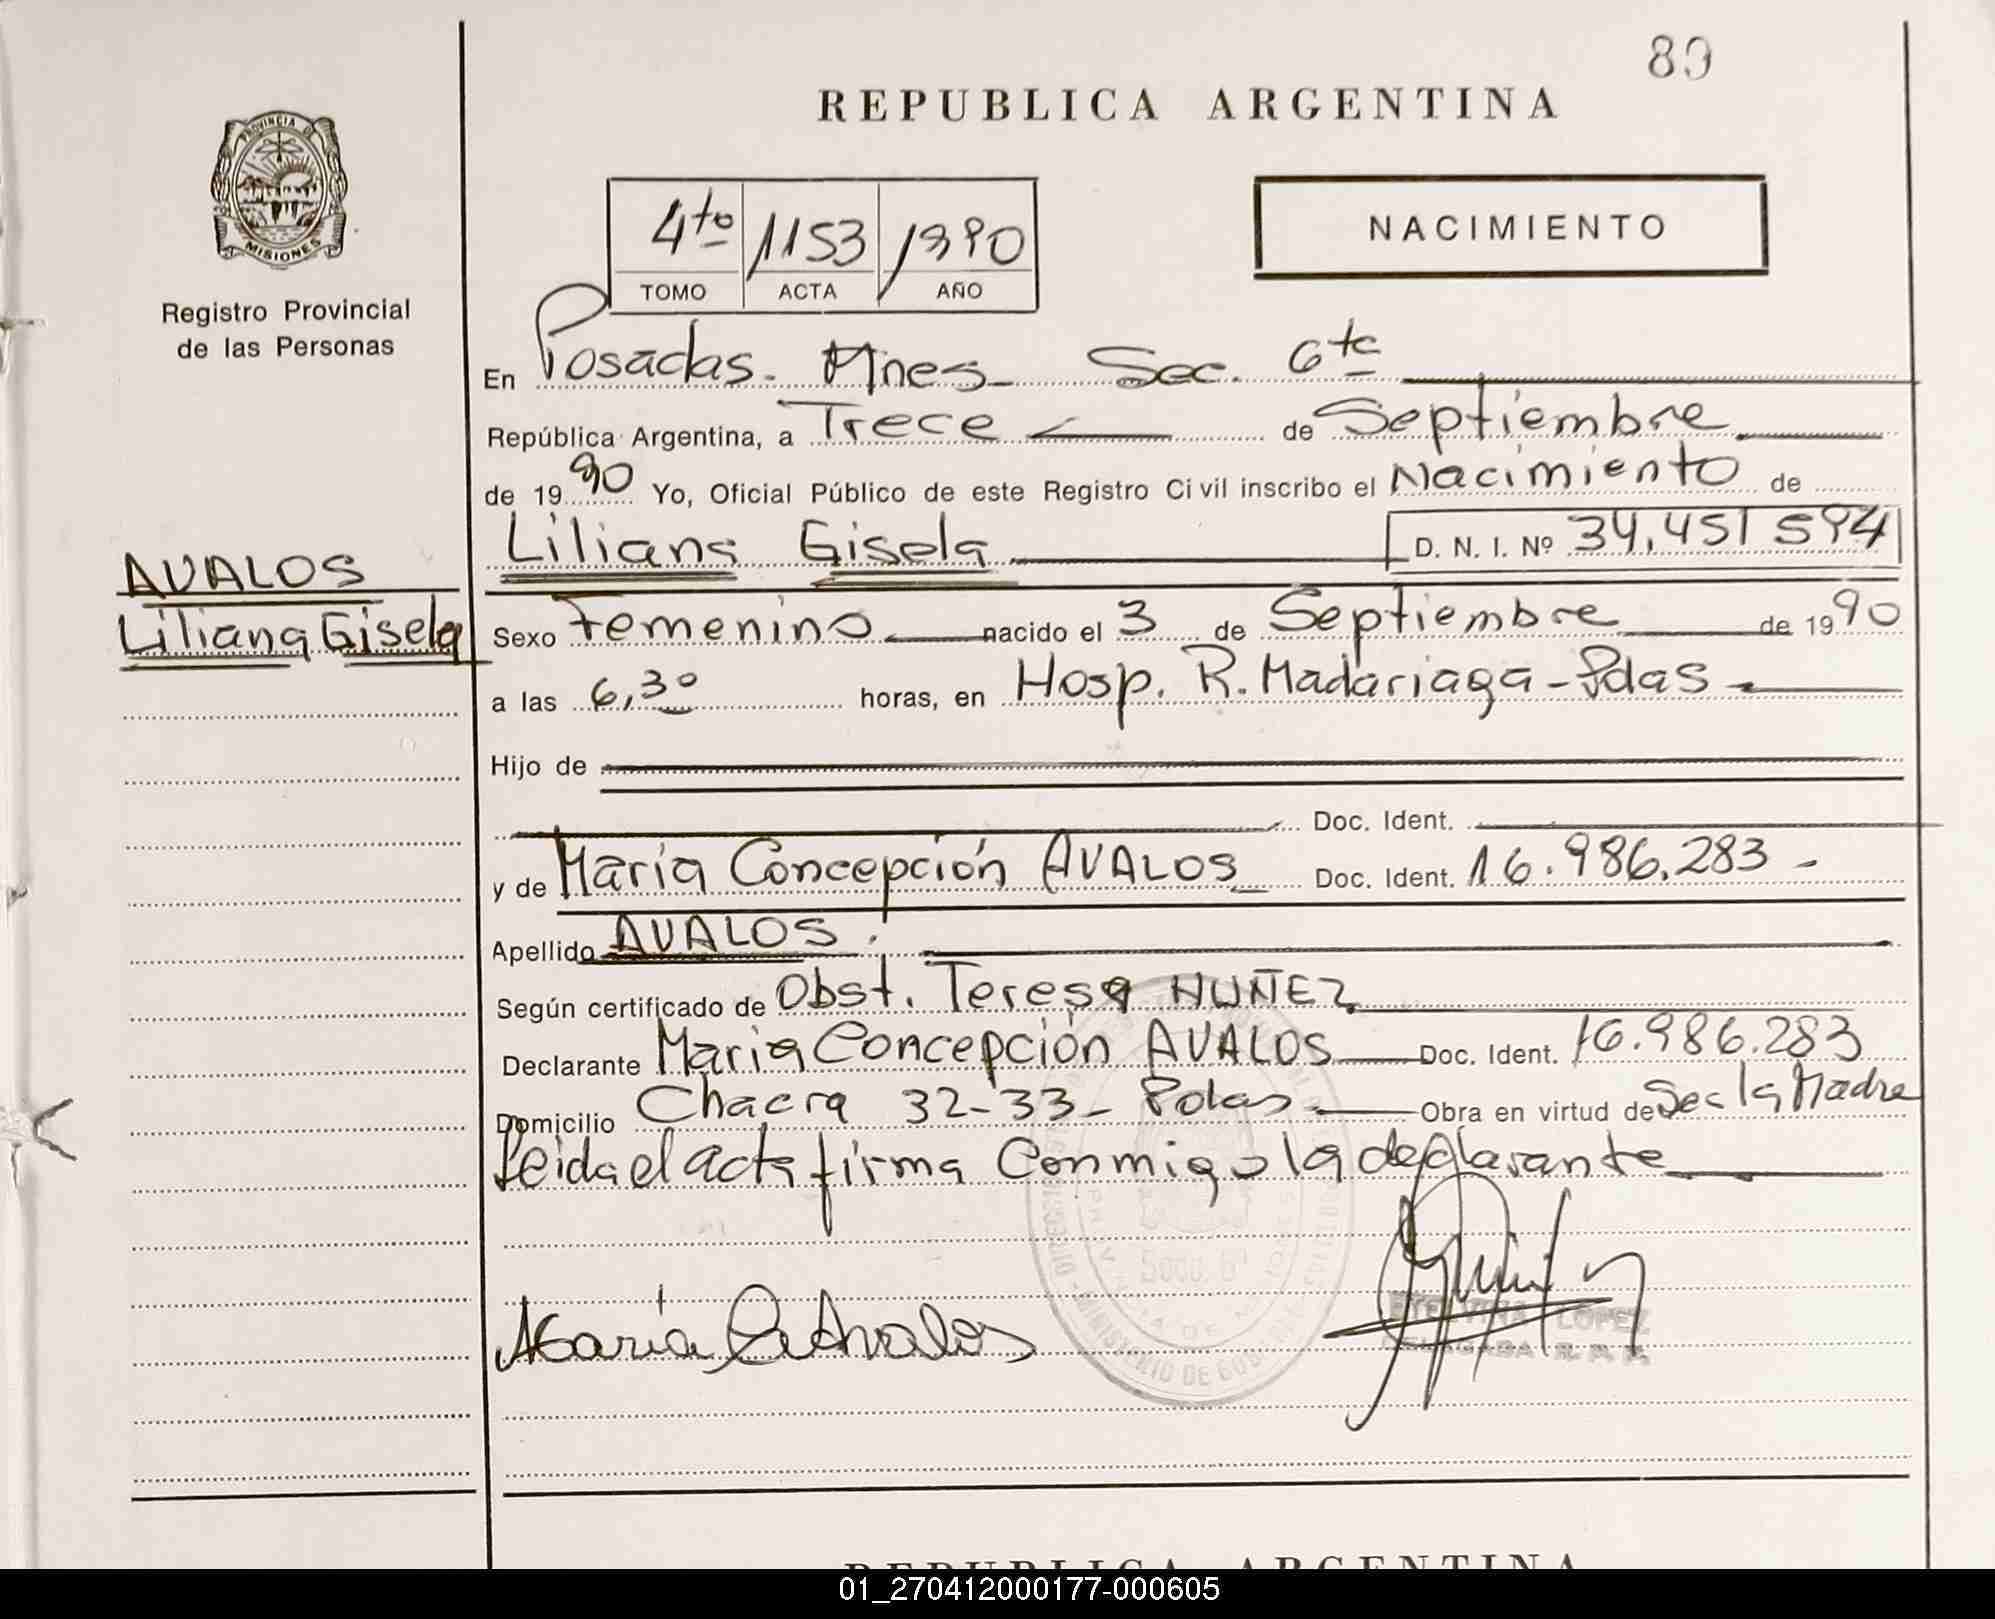 89
REPUBLICA ARGENTINA
PROVINCIA DE
MISIONES
Registro Provincial
de las Personas
4to 1153 1990
TOMO ACTA AÑO
NACIMIENTO
En Posadas. Mnes Sec. 6ta
República Argentina, a Trece de Septiembre
de 1990 Yo, Oficial Público de este Registro Civil inscribo el Nacimiento de
Liliana Gisela D. N. I. Nº 34,451 594
AVALOS
Liliana Gisela
Sexo Femenino nacido el 3 de Septiembre de 1990
a las 6,30 horas, en Hosp. R. Madariaga - Pdas
Hijo de
Doc. Ident.
y de Maria Concepción AVALOS Doc. Ident. 16.986.283 -
Apellido AVALOS.
Según certificado de Obst. Teresa NUÑEZ
Declarante Maria Concepción AVALOS Doc. Ident. 16.986.283
Domicilio Chacra 32-33- Pdas Obra en virtud de Ser la Madre
Leida el acta firma Conmigo la declarante
Maria C. Avalos
LOPEZ
REPUBLICA ARGENTINA
01_270412000177-000605